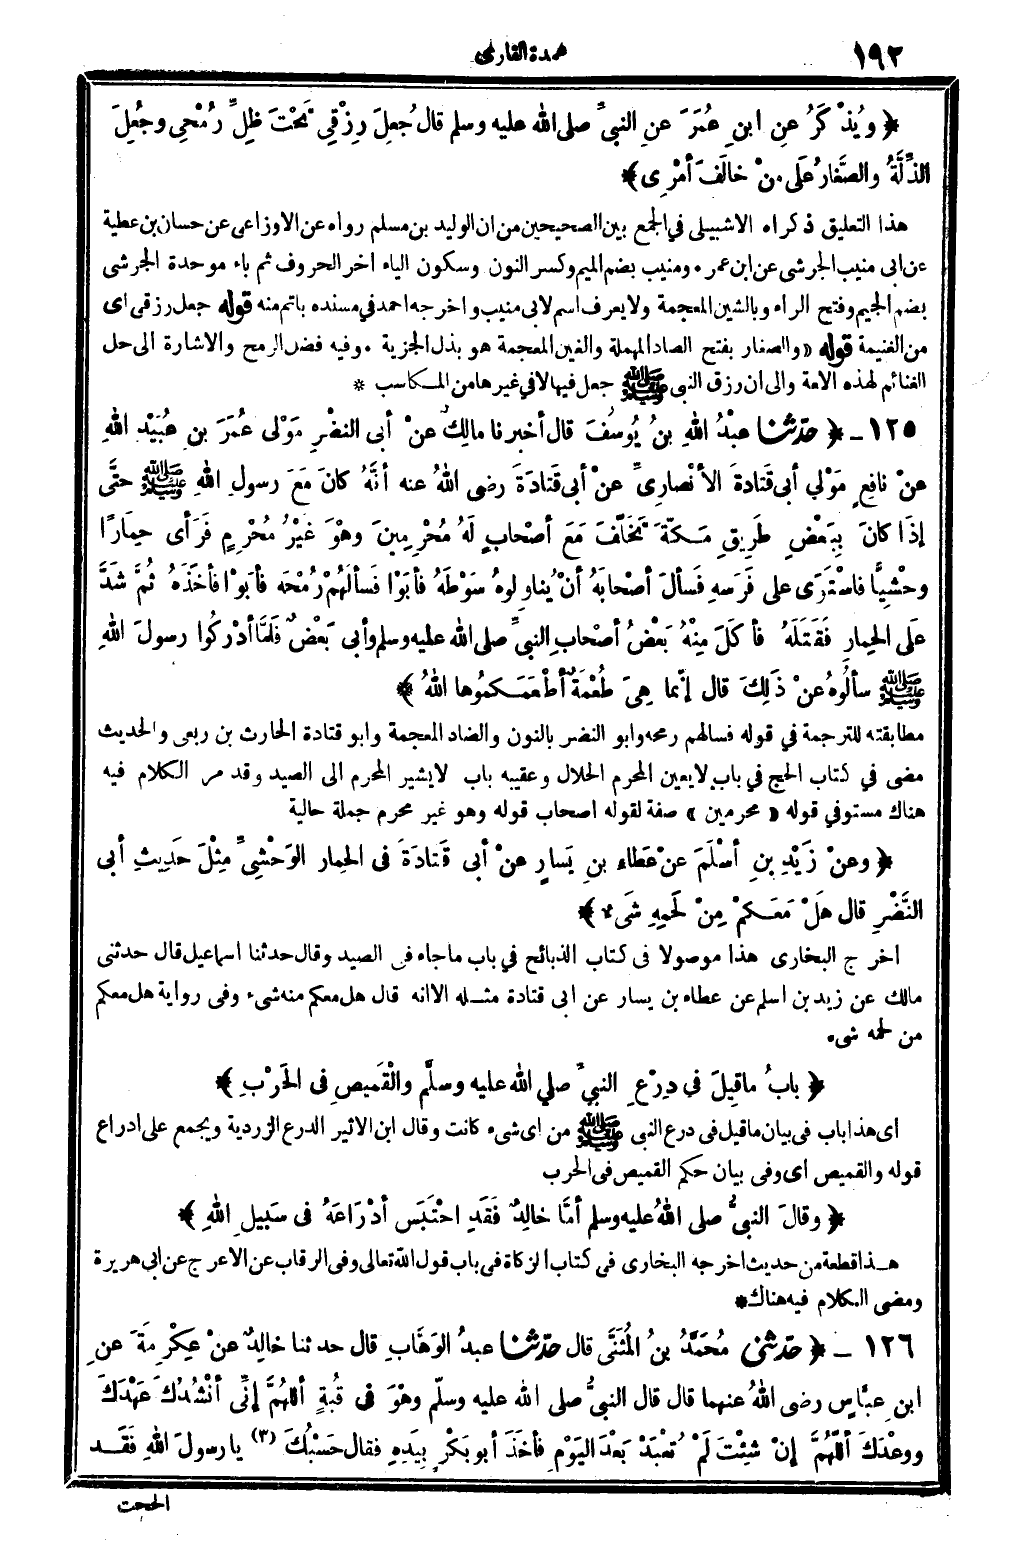 ١٩٢
عمدة القارئ
﴿ ويُذْكَرُ عنِ ابنِ عُمَرَ عنِ النبيِّ صلى الله عليه وسلم قال جُعِلَ رِزْقِي تَحْتَ ظِلِّ رُمْحِي وجُعِلَ
الذِّلَّةُ والصَّغارُ عَلَى مَنْ خالَفَ أمْرِى ﴾
هذا التعليق ذكراه الاشبيلى في الجمع بين الصحيحين من ان الوليد بن مسلم رواه عن الاوزاعى عن حسان بن عطية
عن ابى منيب الجرشى عن ابن عمر ، ومنيب بضم الميم وكسر النون وسكون الياء اخر الحروف ثم باء موحدة الجرشى
بضم الجيم وفتح الراء وبالشين المعجمة ولا يعرف اسم لابى منيب واخرجه احمد في مسنده باتم منه قوله جعل رزقى اى
من الغنيمة قوله «والصغار بفتح الصاد المهملة والغين المعجمة هو بذل الجزية . وفيه فضل الرمح والاشارة الى حل
الغنائم لهذه الامة والى ان رزق النبى ﷺ جعل فيها لا في غيرها من المكاسب *
١٢٥ - ﴿ حدّثنا عبدُ اللهِ بنُ يُوسُفَ قال أخبرنا مالِكٌ عنْ أبى النضرِ مَوْلى عُمَرَ بنِ عُبَيْدِ اللهِ
عنْ نافِعٍ مَوْلي أبى قَتادةَ الأنْصارِىِّ عنْ أبى قَتادَةَ رضى اللهُ عنه أنَّهُ كانَ مَعَ رسولِ اللهِ ﷺ حتَّى
إذَا كانَ بِبَعْضِ طَرِيقِ مَكَّةَ تَخَلَّفَ مَعَ أصْحابٍ لَهُ مُحْرِمِينَ وهْوَ غَيْرُ مُحْرِمٍ فَرَأى حِمَارًا
وحْشِيًّا فاسْتَوَى على فَرَسِهِ فَسألَ أصْحابَهُ أنْ يُناوِلوهُ سَوْطَهُ فأبَوْا فَسألَهُمْ رُمْحَه فأبَوْا فأخَذَهُ ثُمَّ شَدَّ
عَلَى الحِمارِ فَقَتَلَهُ فأكَلَ مِنْهُ بَعْضُ أصْحابِ النبيِّ صلى الله عليه وسلم وأبى بَعْضٌ فَلَمَّا أدْرَكُوا رسولَ اللهِ
ﷺ سألُوهُ عنْ ذَلِكَ قال إنَّما هِىَ طُعْمَةٌ أطْعَمَكمُوها اللهُ ﴾
مطابقته للترجمة في قوله فسالهم رمحه وابو النضر بالنون والضاد المعجمة وابو قتادة الحارث بن ربعى والحديث
مضى في كتاب الحج في باب لا يعين المحرم الحلال وعقيبه باب لا يشير المحرم الى الصيد وقد مر الكلام فيه
هناك مستوفي قوله « محرمين » صفة لقوله اصحاب قوله وهو غير محرم جملة حالية
﴿ وعنْ زَيْدِ بنِ أسْلَمَ عنْ عَطاءِ بنِ يَسارٍ عنْ أبى قَتادَةَ فى الحِمار الوَحْشِيِّ مِثْلَ حَدِيثِ أبى
النَّضْرِ قال هَلْ مَعَكمْ مِنْ لَحْمِهِ شَىْءٌ ﴾
اخرج البخارى هذا موصولا فى كتاب الذبائح في باب ما جاء فى الصيد وقال حدثنا اسماعيل قال حدثنى
مالك عن زيد بن اسلم عن عطاء بن يسار عن ابى قتادة مثله الا انه قال هل معكم منه شىء وفى رواية هل معكم
من لحمه شىء
﴿ بابُ ما قِيلَ في دِرْعِ النبيِّ صلي الله عليه وسلَّم والْقَمِيصِ فى الحَرْبِ ﴾
اى هذا باب فى بيان ما قيل فى درع النبى ﷺ من اى شىء كانت وقال ابن الاثير الدرع الزردية ويجمع على ادراع
قوله والقميص اى وفى بيان حكم القميص فى الحرب
﴿ وقالَ النبىُّ صلى اللهُ عليه وسلم أمَّا خالِدٌ فَقَدِ احْتَبَس أدْرَاعَهُ فى سَبِيلِ اللهِ ﴾
هذا قطعة من حديث اخرجه البخارى فى كتاب الزكاة فى باب قول الله تعالى وفى الرقاب عن الاعرج عن ابى هريرة
ومضى الكلام فيه هناك *
١٢٦ - ﴿ حدّثنى مُحَمَّدُ بنُ المُثَنَّى قال حدّثنا عبدُ الوَهَّابِ قال حدثنا خالِدٌ عنْ عِكْرِمَةَ عنِ
ابنِ عبَّاسٍ رضى اللهُ عنهما قال قال النبيُّ صلى الله عليه وسلّم وهْوَ فى قُبةٍ أللهُمَّ إنِّى أنْشُدُكَ عَهْدَكَ
ووعْدَكَ أللَّهُمَّ إنْ شِئْتَ لَمْ تُعْبَدْ بَعْدَ اليَوْمِ فأخَذَ أبو بَكْرٍ بِيَدِهِ فقال حَسْبُكَ (٣) يا رسولَ اللهِ فَقَد
الححت